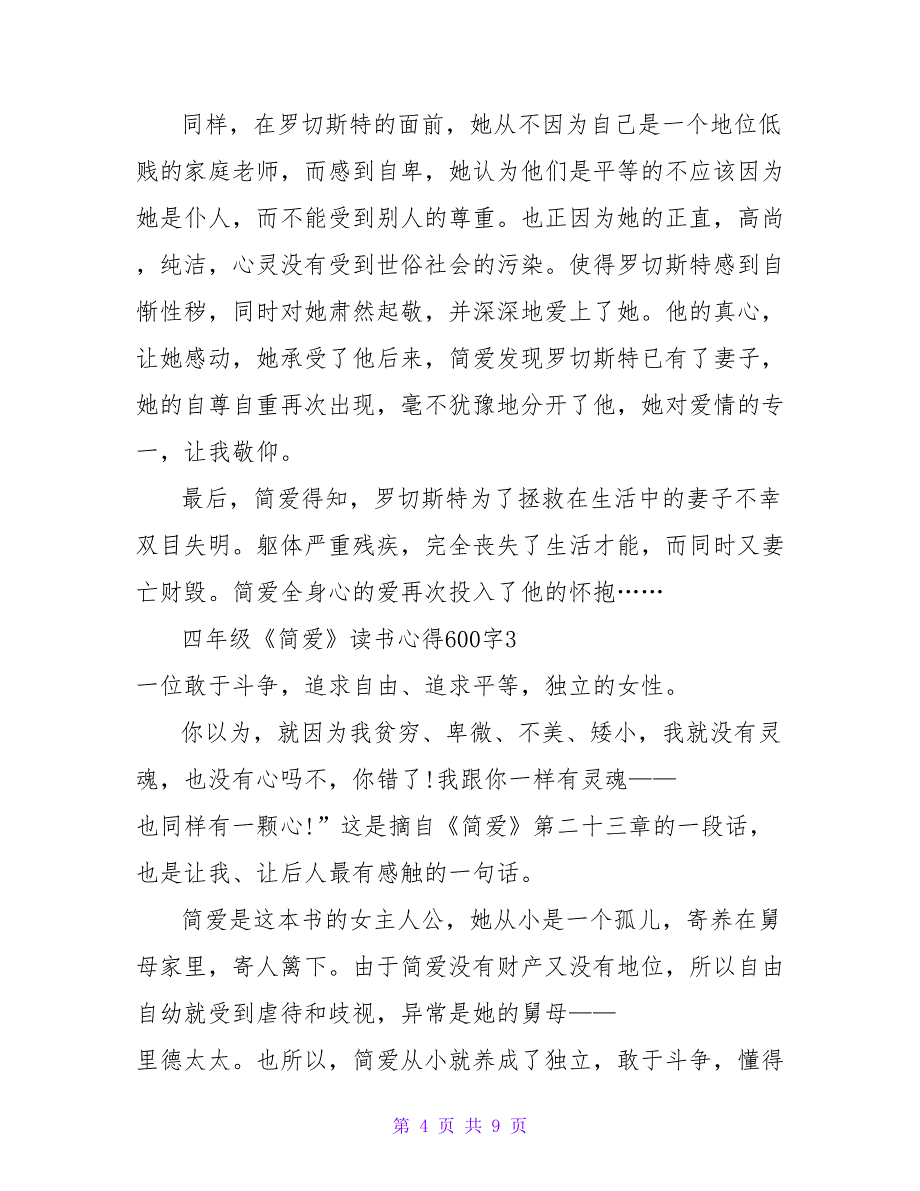 同样，在罗切斯特的面前，她从不因为自己是一个地位低
贱的家庭老师，而感到自卑，她认为他们是平等的不应该因为
她是仆人，而不能受到别人的尊重。也正因为她的正直，高尚
，纯洁，心灵没有受到世俗社会的污染。使得罗切斯特感到自
惭性秽，同时对她肃然起敬，并深深地爱上了她。他的真心，
让她感动，她承受了他后来，简爱发现罗切斯特已有了妻子，
她的自尊自重再次出现，毫不犹豫地分开了他，她对爱情的专
一，让我敬仰。
最后，简爱得知，罗切斯特为了拯救在生活中的妻子不幸
双目失明。躯体严重残疾，完全丧失了生活才能，而同时又妻
亡财毁。简爱全身心的爱再次投入了他的怀抱……
四年级《简爱》读书心得600字3
一位敢于斗争，追求自由、追求平等，独立的女性。
你以为，就因为我贫穷、卑微、不美、矮小，我就没有灵
魂，也没有心吗不，你错了!我跟你一样有灵魂——
也同样有一颗心!”这是摘自《简爱》第二十三章的一段话，
也是让我、让后人最有感触的一句话。
简爱是这本书的女主人公，她从小是一个孤儿，寄养在舅
母家里，寄人篱下。由于简爱没有财产又没有地位，所以自由
自幼就受到虐待和歧视，异常是她的舅母——
里德太太。也所以，简爱从小就养成了独立，敢于斗争，懂得
第 4 页 共 9 页